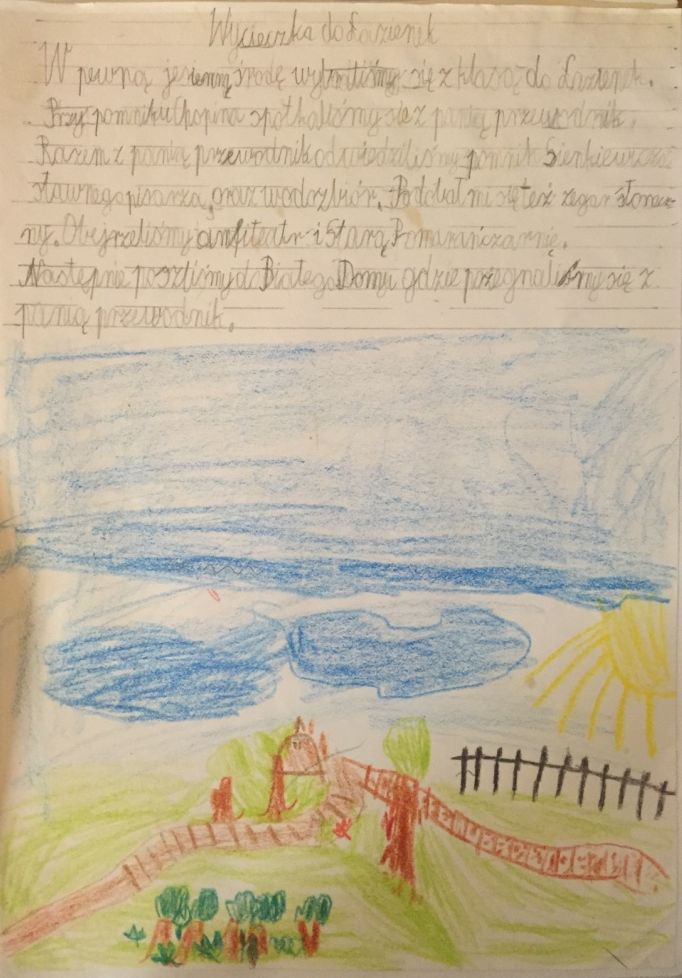 Wycieczka do Łazienek
W pewną jesienną środę wybraliśmy się z klasą do Łazienek.
Przy pomniku Chopina spotkaliśmy się z panią przewodnik.
Razem z panią przewodnik odwiedziliśmy pomnik Sienkiewicza
sławnego pisarza, oraz wodozbiór. Podobał mi się też zegar słonecz
ny. Obejrzeliśmy amfiteatr i Starą Pomarańczarnię.
Następnie poszliśmy d Białego Domu gdzie pożegnaliśmy się z
panią przewodnik.